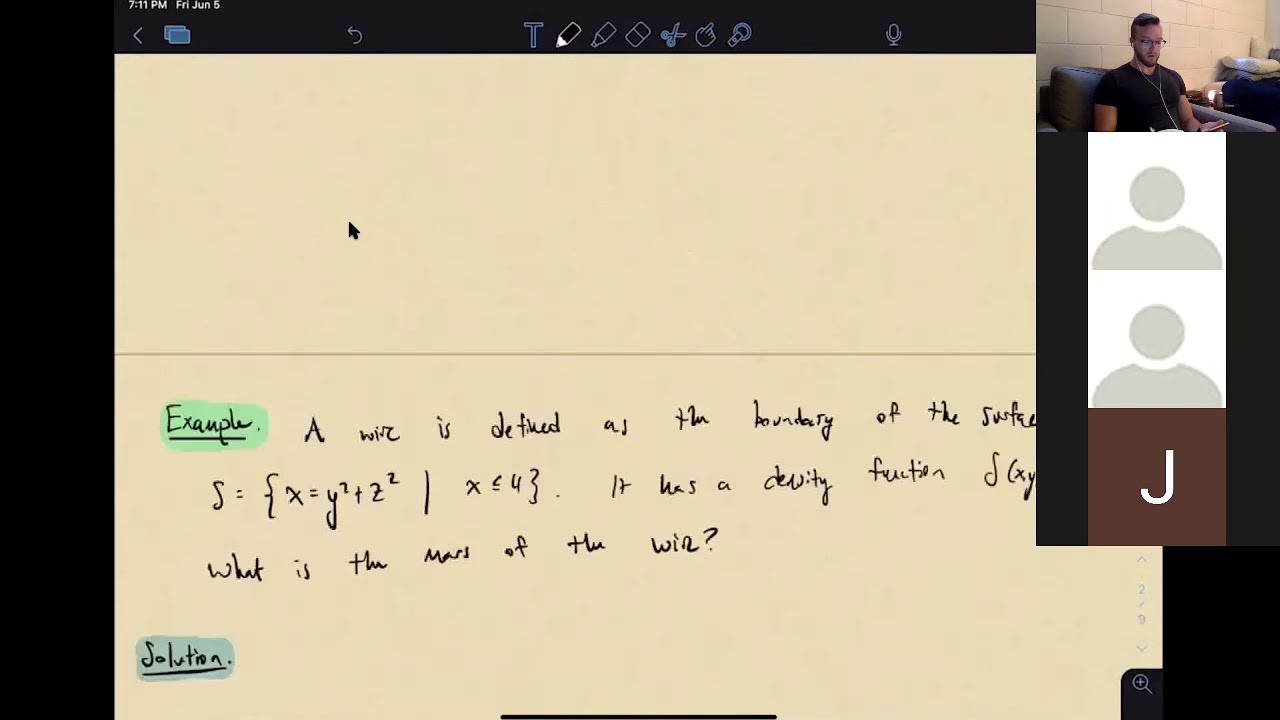 7:11 PM Fri Jun 5
T
Example. A wire is defined as the boundary of the surfa
S = { x = y² + z² | x ≤ 4 } . It has a density function δ(x,y
What is the mass of the wire?
Solution.
J
2
/
9